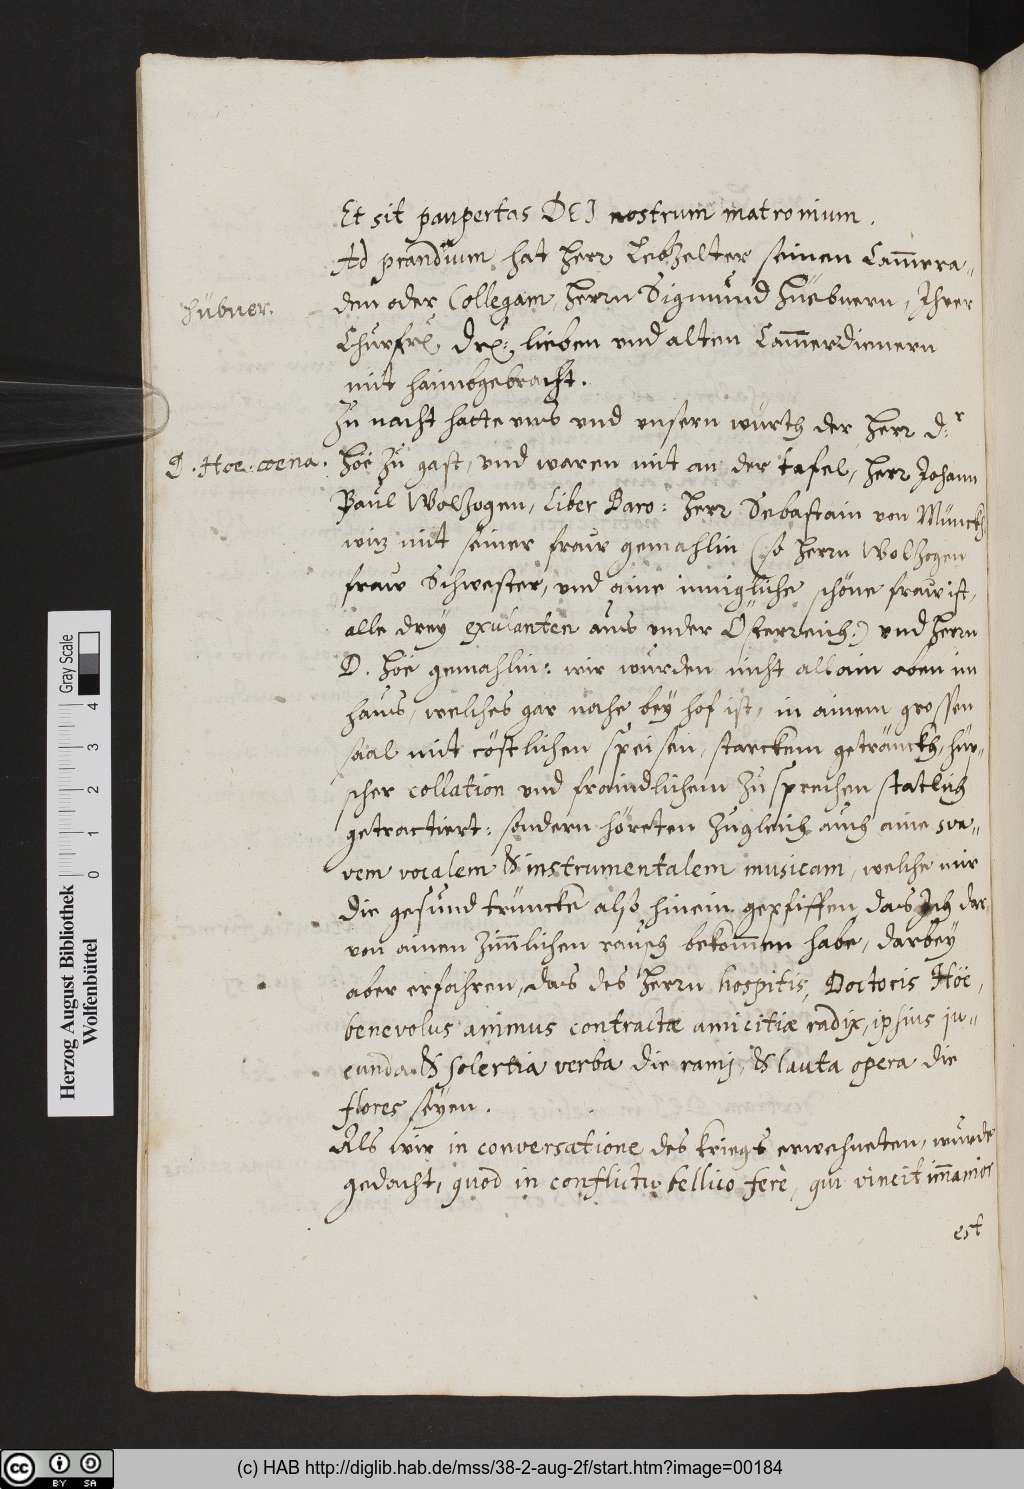 Et sit paupertas DEI nostrum matronium.
Ad prandium hat Herr Lebzelter seinen Cam̅era-
Hübner.
den oder Collegam, Herrn Sigmund Hüebnern, Ihrer
Churfr. drl: lieben und alten Cam̅erdienern
mit haimbgebracht.
Zu nacht hatte uns und unsern würth der Herr d:r
D. Hoe. coena.
Höe zu gast, und waren mit an der tafel, Herr Johann
Paul Wolzogen, Liber Baro: Herr Sebastain von Münck
witz mit seiner fraw gemahlin (so Herrn Wolzogen
fraw Schwester, und aine innigliche schöne fraw ist,
alle drey exulanten aus under Österreich:) und Herrn
D. Höe gemahlin: wir wurden nicht allain oben im
haus, welches gar nahe bey hof ist, in ainem grossen
saal mit cöstlichen speisen, starckem geträncke, hüp-
scher collation und fraindlichem zusprechen statlich
getractiert: sondern höreten zugleich auch aine sva-
vem vocalem & instrumentalem musicam, welche mir
die gesund trüncke also hinein gepfiffen, das Ich dar
von ainen zim̅lichen rausch bekom̅en habe, darbey
aber erfahren, das des Herrn hospitis, Doctoris Höe,
benevolus animus contractæ amicitiæ radix, ipsius ju-
cunda & solertia verba die ramj, & lauta opera die
flores seyen.
Als wir in conversatione des kriegs erwehneten, wurde
gedacht, quod in conflictu bellico ferè, qui vincit im̅anior
est
Herzog August Bibliothek
Wolfenbüttel
0 1 2 3 4
Gray Scale
(c) HAB http://diglib.hab.de/mss/38-2-aug-2f/start.htm?image=00184
cc BY SA